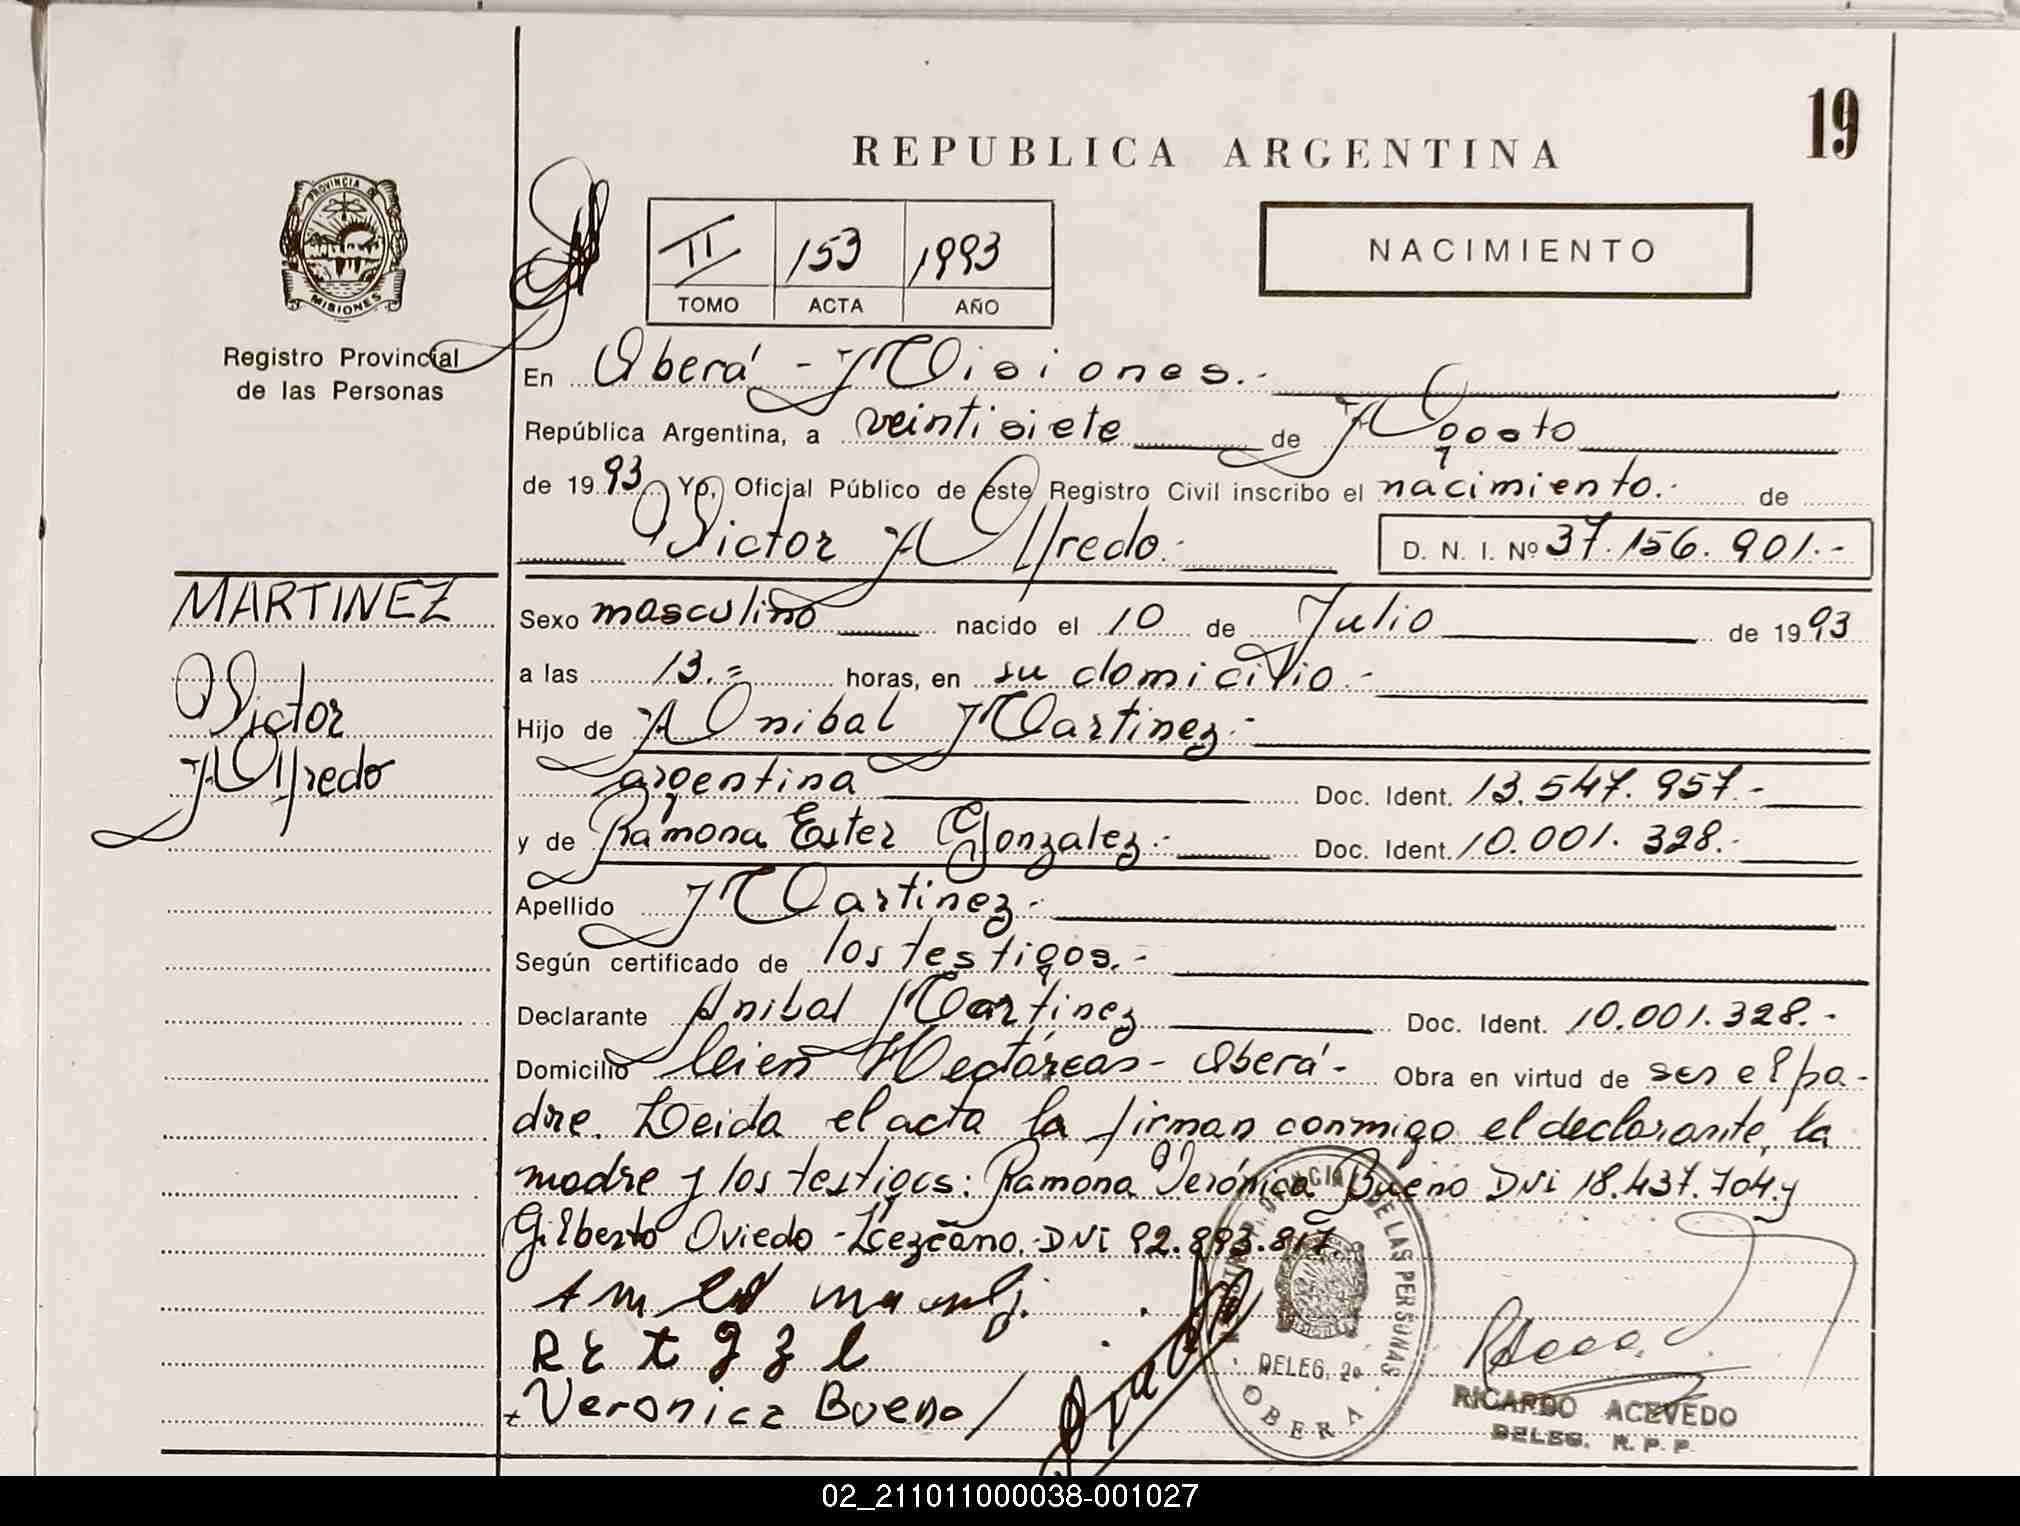 19
REPUBLICA ARGENTINA
PROVINCIA DE
MISIONES
Registro Provincial
de las Personas
II 153 1993
TOMO ACTA AÑO
NACIMIENTO
En Oberá - Misiones.-
República Argentina, a veintisiete de Agosto
de 1993 Yo, Oficial Público de este Registro Civil inscribo el nacimiento.- de
Victor Alfredo.- D. N. I. Nº 37.156.901.-
MARTINEZ
Victor
Alfredo
Sexo masculino nacido el 10 de Julio de 1993
a las 13.= horas, en su domicilio.-
Hijo de Anibal Martinez.-
argentina Doc. Ident. 13.547.957.-
y de Ramona Ester Gonzalez.- Doc. Ident. 10.001.328.-
Apellido Martinez.-
Según certificado de los testigos.-
Declarante Anibal Martinez Doc. Ident. 10.001.328.-
Domicilio Cien Hectáreas - Oberá - Obra en virtud de ser el pa-
dre. Leida el acta la firman conmigo el declarante, la
madre y los testigos: Ramona Verónica Bueno DNi 18.437.704 y
Gilberto Oviedo - Lezcano.- DNi 92.893.817
R E t g z l
Veronica Bueno
DE LAS PERSONAS
DELEG. 2ª
OBERA
RICARDO ACEVEDO
DELEG. R. P. P.
02_211011000038-001027